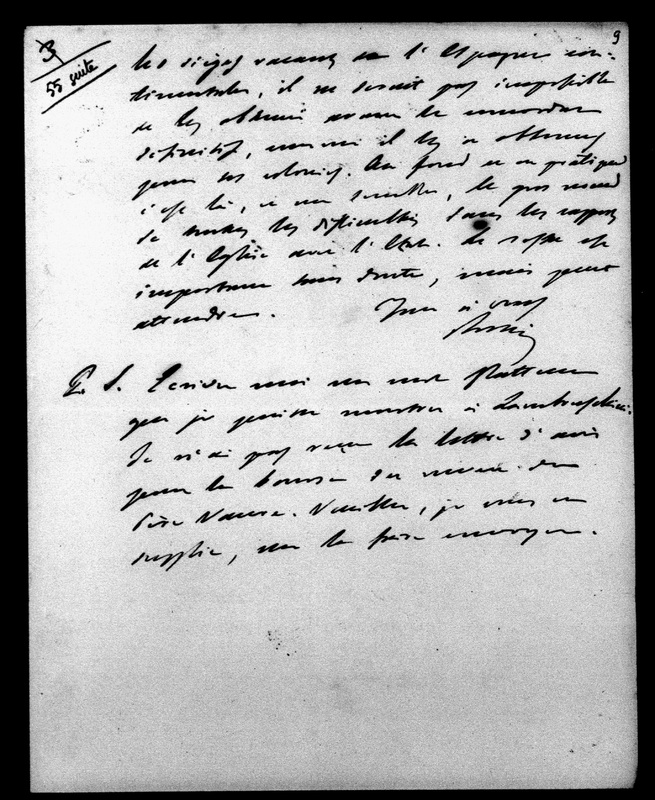 3
55 suite
9
les sièges vacants de l'Espagne con-
tinentale, il ne serait pas impossible
de les obtenir avant le concordat
définitif, comme il les a obtenus
pour ses colonies. Au fond et en pratique
c'est là, ce me semble, le gros nœud
de toutes les difficultés dans les rapports
de l'Eglise avec l'Etat. Le reste est
important sans doute, mais peut
attendre. Tout à vous
P. S. Ecrivez moi un mot
que je puisse montrer à Lambruschini.
Je n'ai pas reçu la lettre d'avis
pour la bourse du neveu du
Père Vaures. Veuillez, je vous en
supplie, me la faire envoyer.